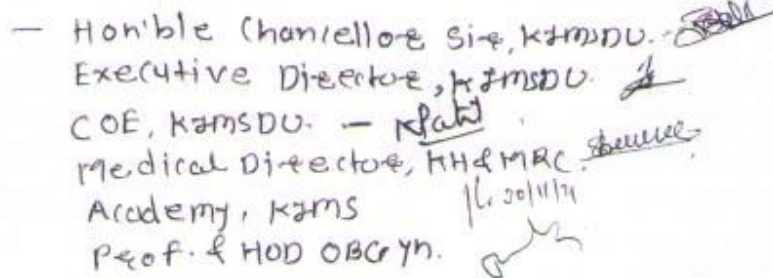 — Hon'ble Chancellor Sir, KIMSDU.
Executive Director, KIMSDU.
COE, KIMSDU. — KPatil
Medical Director, KH & MRC.
Academy, KIMS
Prof. & HOD OBGYn.